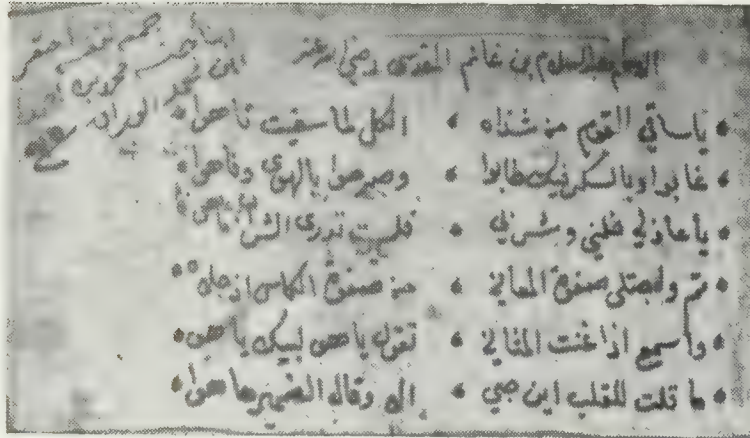 عبد السلام بن غانم القدسي رضي الله عنه
يا ساقي القوم من شذاه • الكل لما سقيت تاهوا
غابوا وبالسكر فيك طابوا • وصرحوا بالهوى وفاهوا
يا عاذلي خلني وشربي • فلست تدري الشراب ما هو
قم واجتلي صفوة المعاني • من صفوة الكاس اذ جلاه
واسمع اذا غنت المثاني • تقول يا هو لبيك يا هو
ما قلت للقلب اين حبي • الا وقال الضمير ها هو